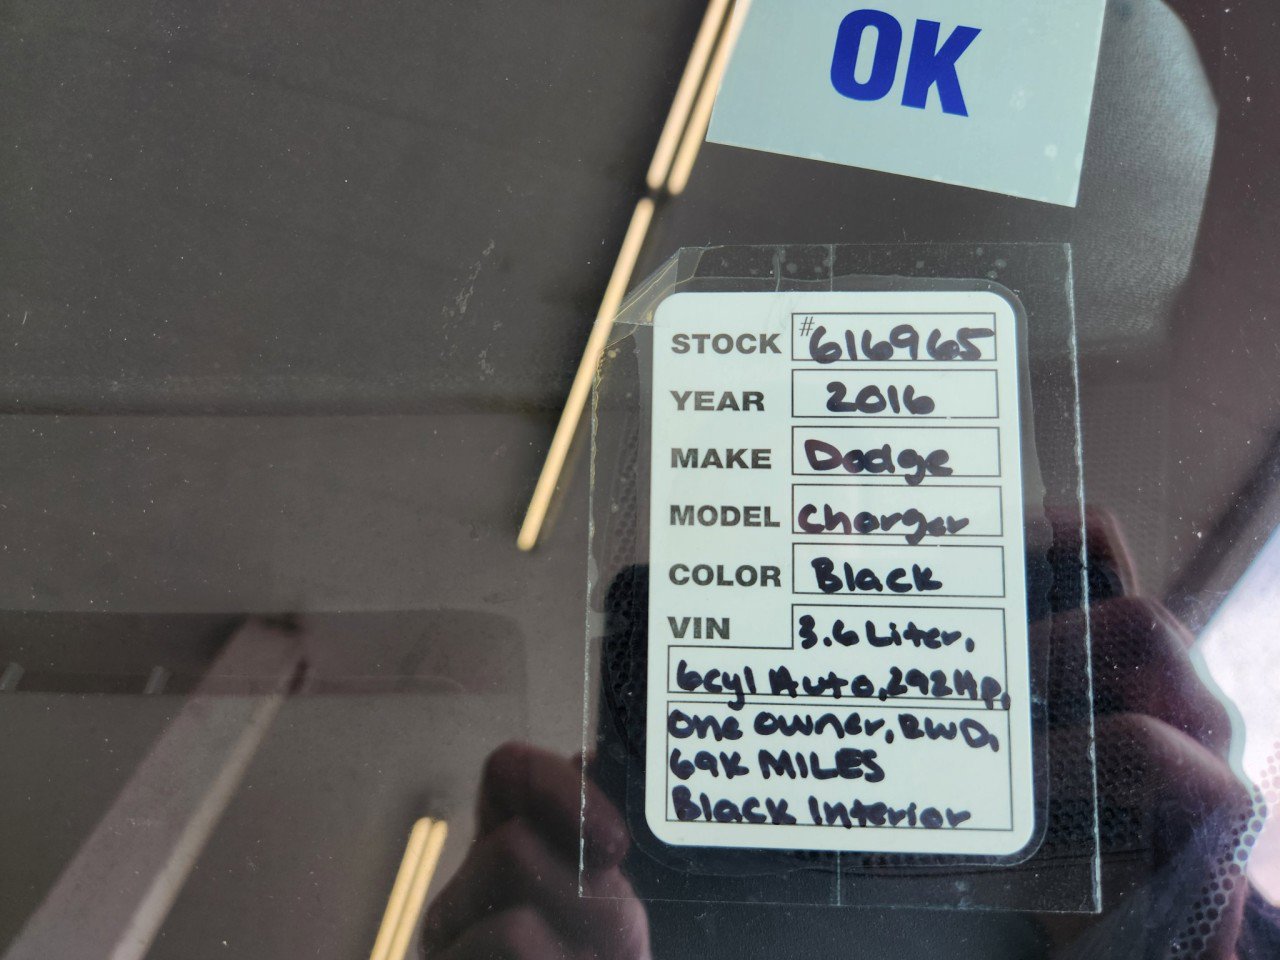 OK
STOCK #616965
YEAR 2016
MAKE Dodge
MODEL Charger
COLOR Black
VIN 3.6 Liter,
6cyl Auto, 292 Hp,
One owner, RWD,
69K MILES
Black Interior